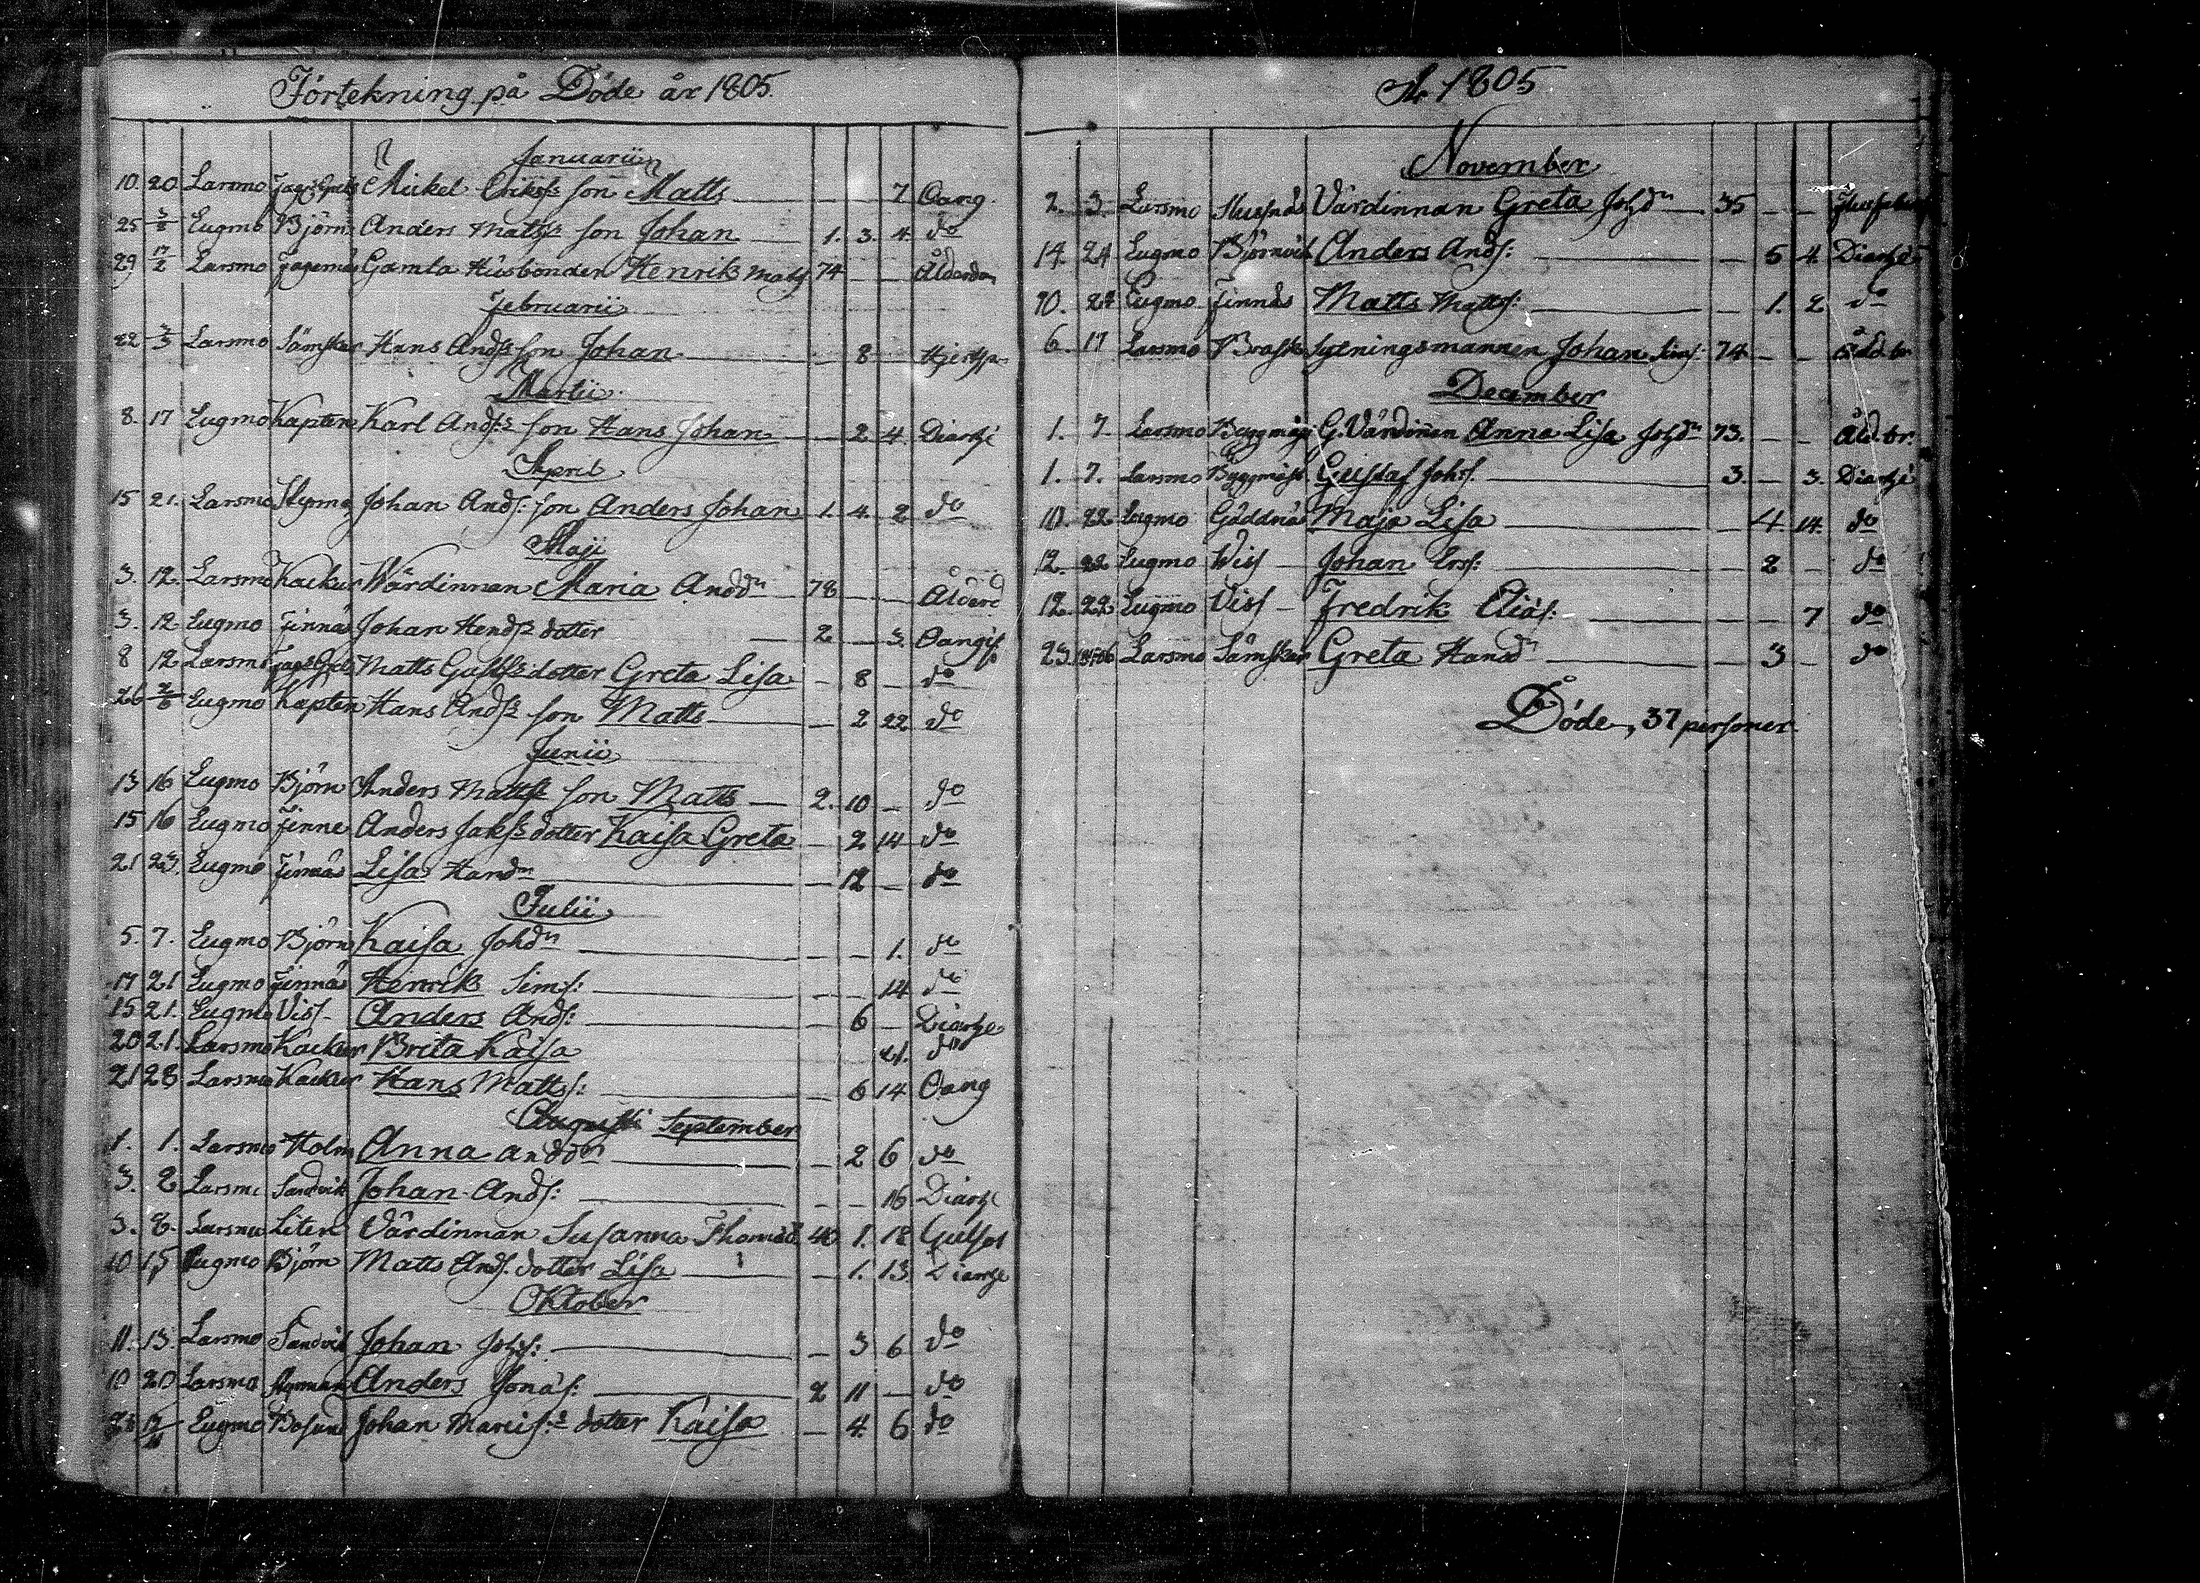 Förtekning på Döde år 1805
Januarii
10. 20 Larsmo Mickel Eriks: son Matts — 7 Oang.
25 3/2 Eugmo Björn Anders Matts: son Johan — 1. 3. 4. do
29 17/2 Larsmo Gamla Husbonden Henrik Mats: 74 — — Ålderdom
Februarii
22 3/3 Larsmo Sämskar Hans Ands: son Johan — 8 —
Martii
8. 17 Eugmo Kapten Karl Ands: son Hans Johan — 2 4. Diarhé
April
15 21. Larsmo Johan Ands: son Anders Johan 1. 4. 2 do
Maji
3. 12. Larsmo Kackur Wärdinnan Maria Andd:n — 78 — — Ålderd
3. 12 Eugmo Finnäs Johan Hends: dotter — 2 — 3. Oangs
8 12 Larsmo Matts Gusts: dotter Greta Lisa — 8 — do
26 2/6 Eugmo Kapten Hans Ands: son Matts — 2 22 do
Junii
13 16 Eugmo Björn Anders Matts: son Matts — 2. 10 — do
15 16 Eugmo Finne Anders Jaks: dotter Kaisa Greta — 2 14 do
21 23. Eugmo Finnäs Lisa Hansd:n — 12 — do
Julii
5. 7. Eugmo Björn Kaisa Johd:n — — 1. do
17 21 Eugmo Finnäs Henrik Sims: — — 14 do
15 21. Eugmo Viss- Anders Ands: — 6 — Diarhe
20 21. Larsmo Kackur Brita Kaisa 21. do
21 28 Larsmo Kackur Hans Matts: — 6 14 Oang
Augusti September
1. 1. Larsmo Holm Anna andd:n — 2 6 do
3. 2 Larsmo Sandvik Johan Ands: — — 16 Diarhe
3. 8. Larsmo Liten Värdinnan Susanna Thomasd 40 1. 18 Gulsot
10 15 Eugmo Björn Matts Ands. dotter Lisa — 1. 13 Diarhe
Oktober
11. 13. Larsmo Sandvik Johan Johs: — 3 6 do
10 20 Larsmo Anders Jonas: — 2 11 — do
Eugmo Bosund Johan Maris: dotter Kaisa — 4. 6 do
År 1805
November
2. 3. Larsmo Värdinnan Greta Johd:n — 35 — —
14. 24 Eugmo Björnvik Anders Ands: — 5 4. Diarhé
20. 24 Eugmo Finnäs Matts Matts: — 1. 2 do
6. 17 Larsmo Brask Sytningsmannen Johan Sims: 74 — — Åld.br
December
1. 7. Larsmo Byggmäst G. Värdinnan Anna Lisa Johd:n 73. — — Åld.br.
1. 7. Larsmo Byggmäst. Gustaf Johs: — 3. — 3. Diarhé
10. 22 Eugmo Gäddnäs Maja Lisa — 4 14. do
12. 22 Eugmo Wiss — Johan Ers: — 2 — do
12. 22 Eugmo Viss — Fredrik Elias: — — 7 do
23. Larsmo Sämskar Greta Hansd:n — 3 — do
Döde, 37 personer